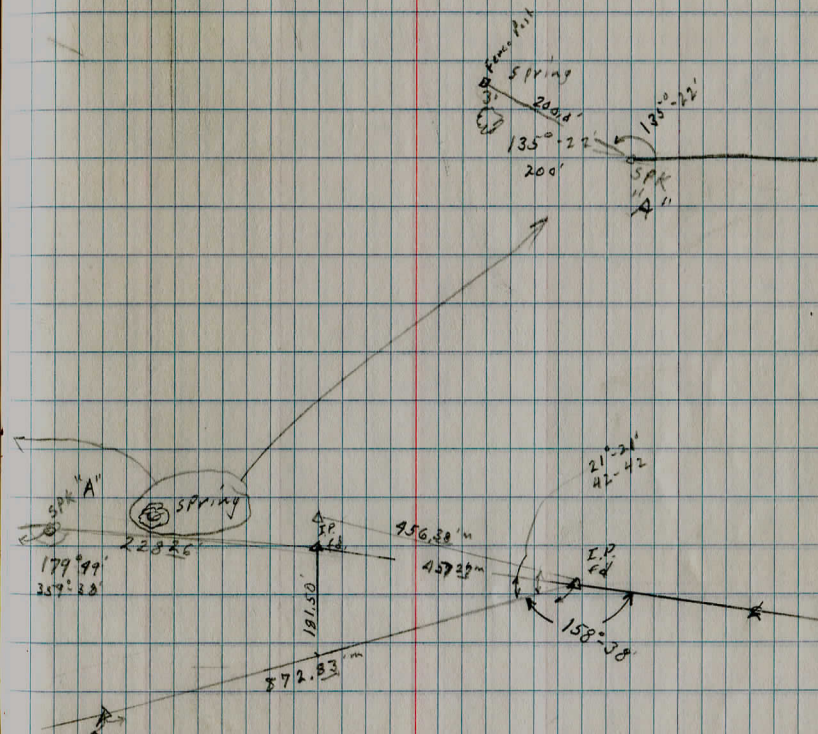 Fence Post
Spring
200.0'
3'
135°-22'
135°-22'
200'
SPK
"A"
21°-21'
42-42
SPK "A"
Spring
228.26'
179°49'
359°-38'
I.P.
fd.
456.38'm
457.27m
I.P.
fd
191.50'
158°-38'
872.83'm